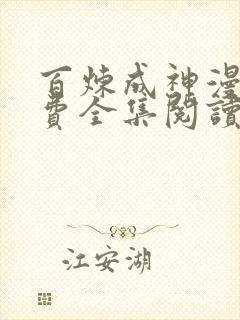 百炼成神漫
费全集閱讀
江安湖